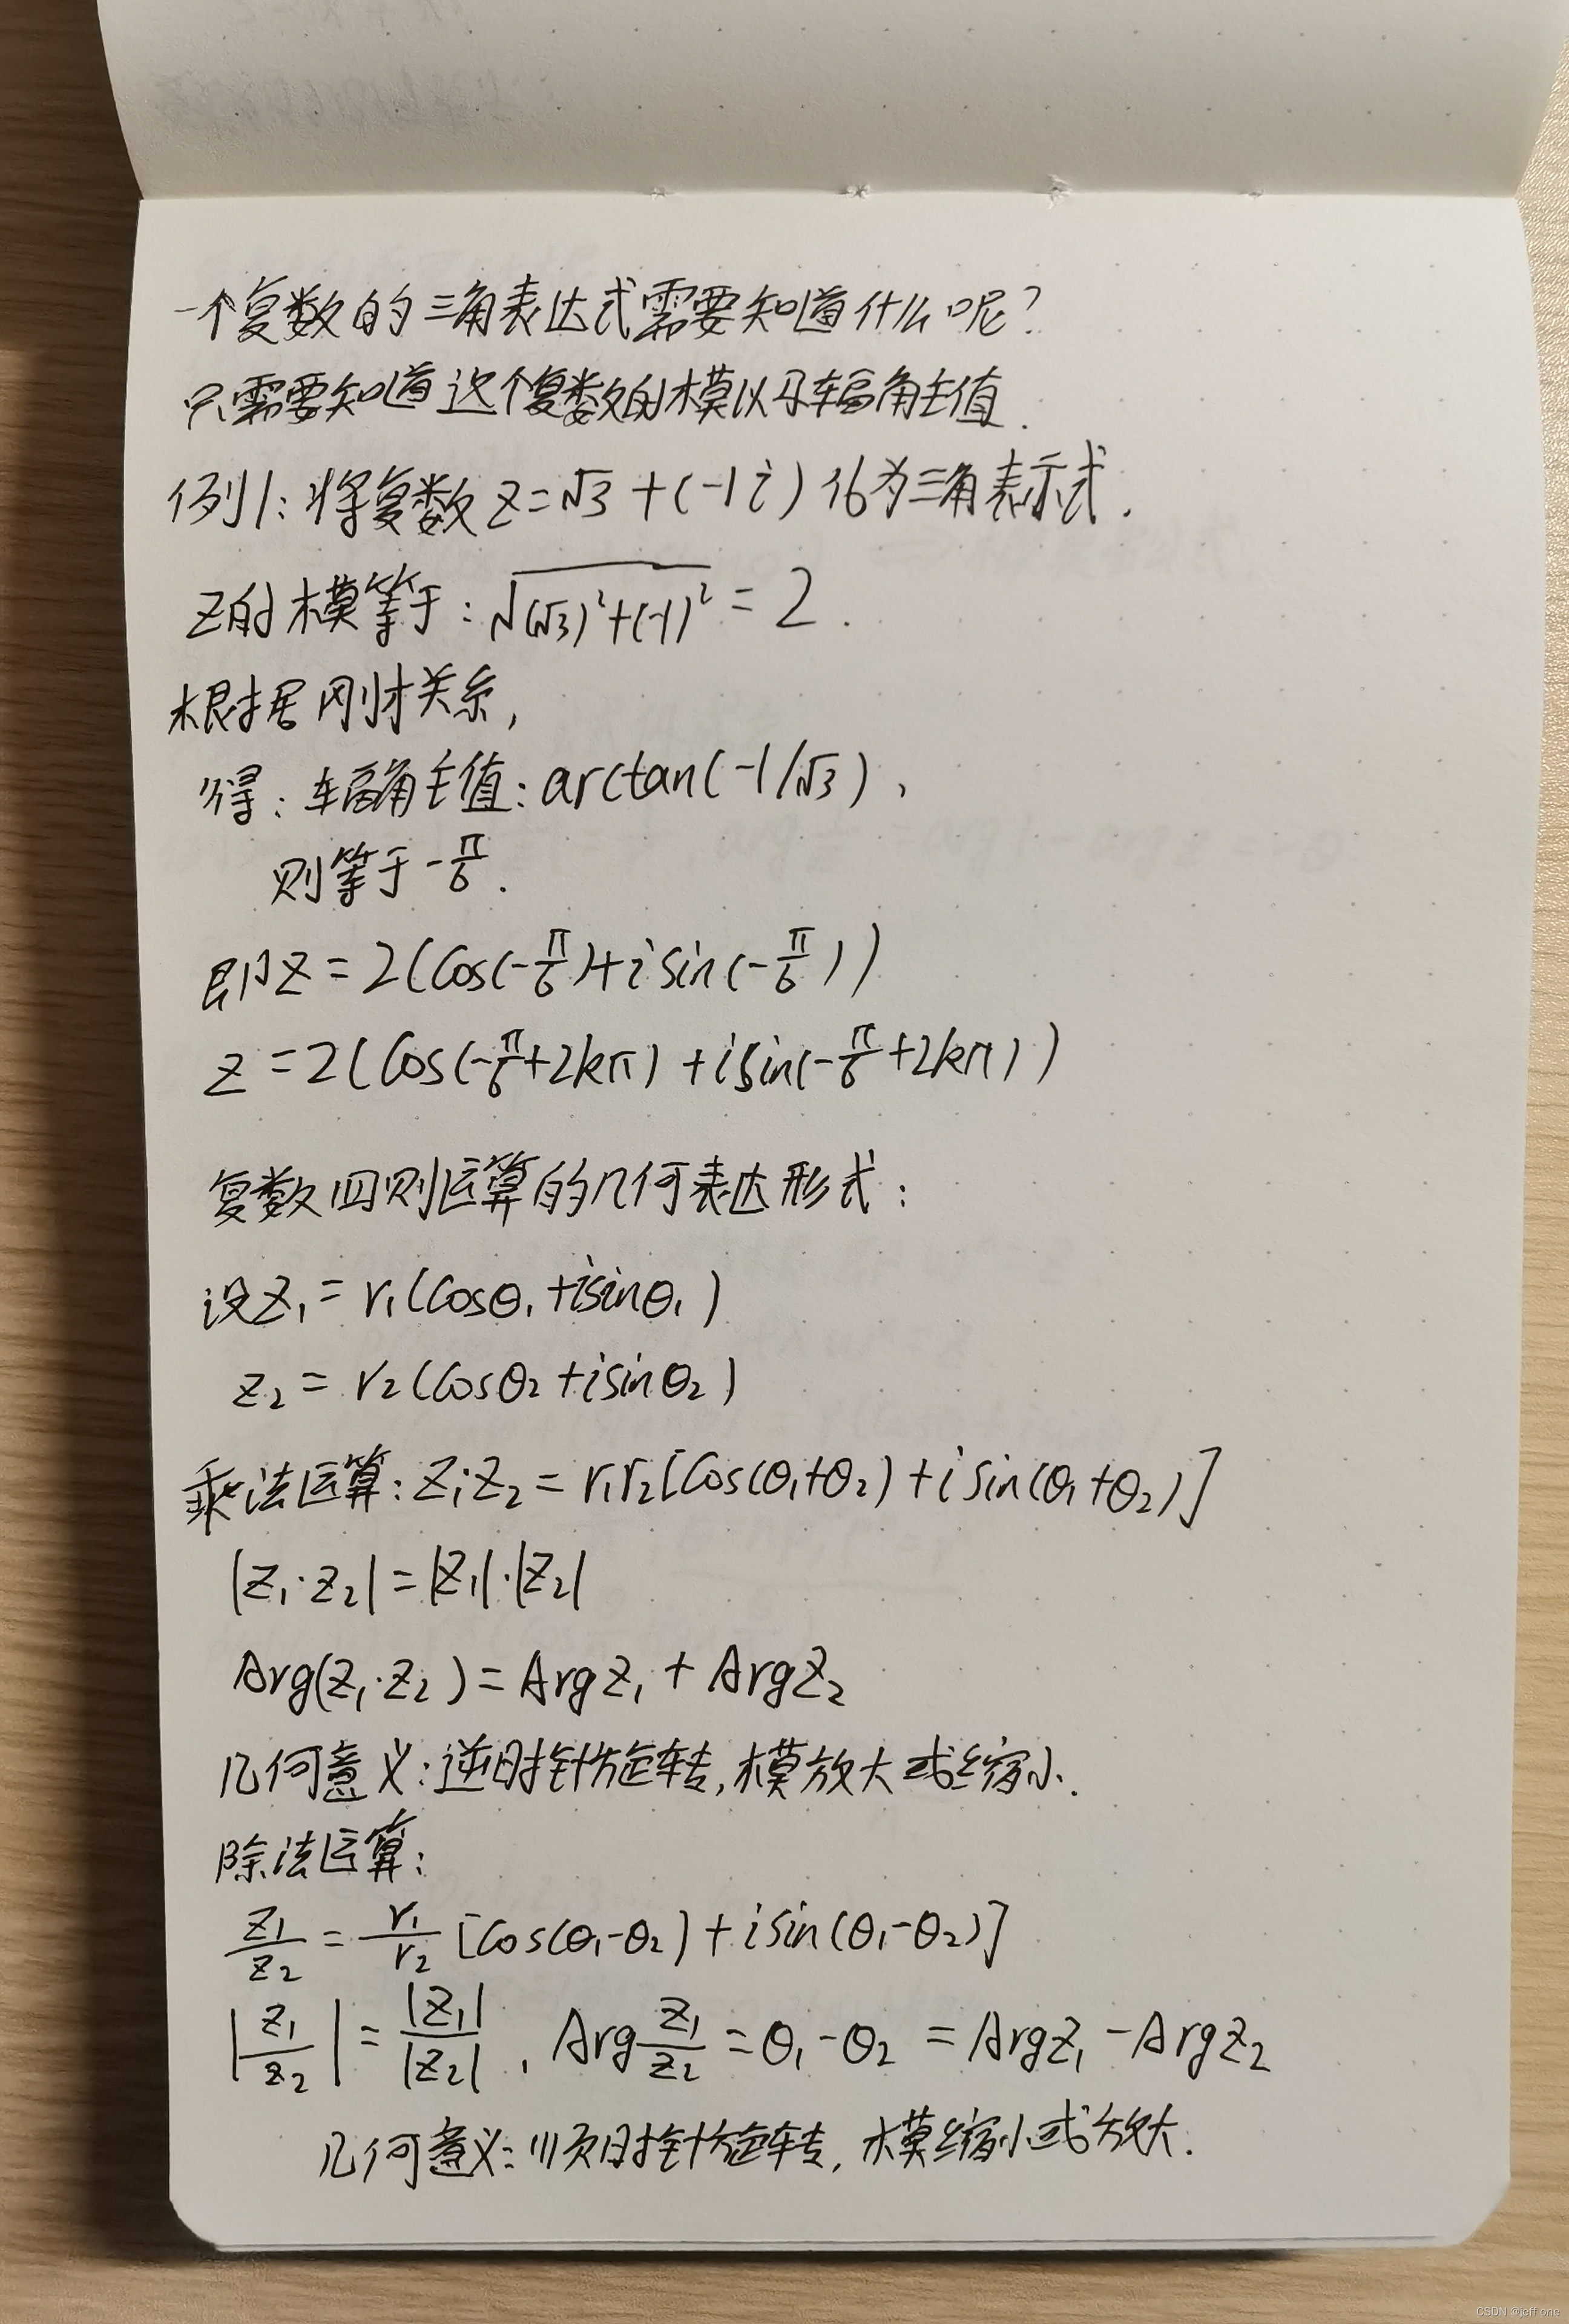 一个复数的三角表达式需要知道什么呢?
只需要知道这个复数的模以及辐角主值.
例1:将复数z=√3+(-1i)化为三角表示式.
z的模等于:√((√3)²+(-1)²)=2.
根据刚才关系,
得:辐角主值:arctan(-1/√3),
则等于-π/6.
即z=2(cos(-π/6)+isin(-π/6))
z=2(cos(-π/6+2kπ)+isin(-π/6+2kπ))
复数四则运算的几何表达形式:
设z₁=r₁(cosθ₁+isinθ₁)
z₂=r₂(cosθ₂+isinθ₂)
乘法运算:z₁·z₂=r₁r₂[cos(θ₁+θ₂)+isin(θ₁+θ₂)]
|z₁·z₂|=|z₁|·|z₂|
Arg(z₁·z₂)=Argz₁+Argz₂
几何意义:逆时针旋转,模放大或缩小.
除法运算:
z₁/z₂=r₁/r₂[cos(θ₁-θ₂)+isin(θ₁-θ₂)]
|z₁/z₂|=|z₁|/|z₂|,Arg z₁/z₂=θ₁-θ₂=Argz₁-Argz₂
几何意义:顺时针旋转,模缩小或放大.
CSDN @jeff one